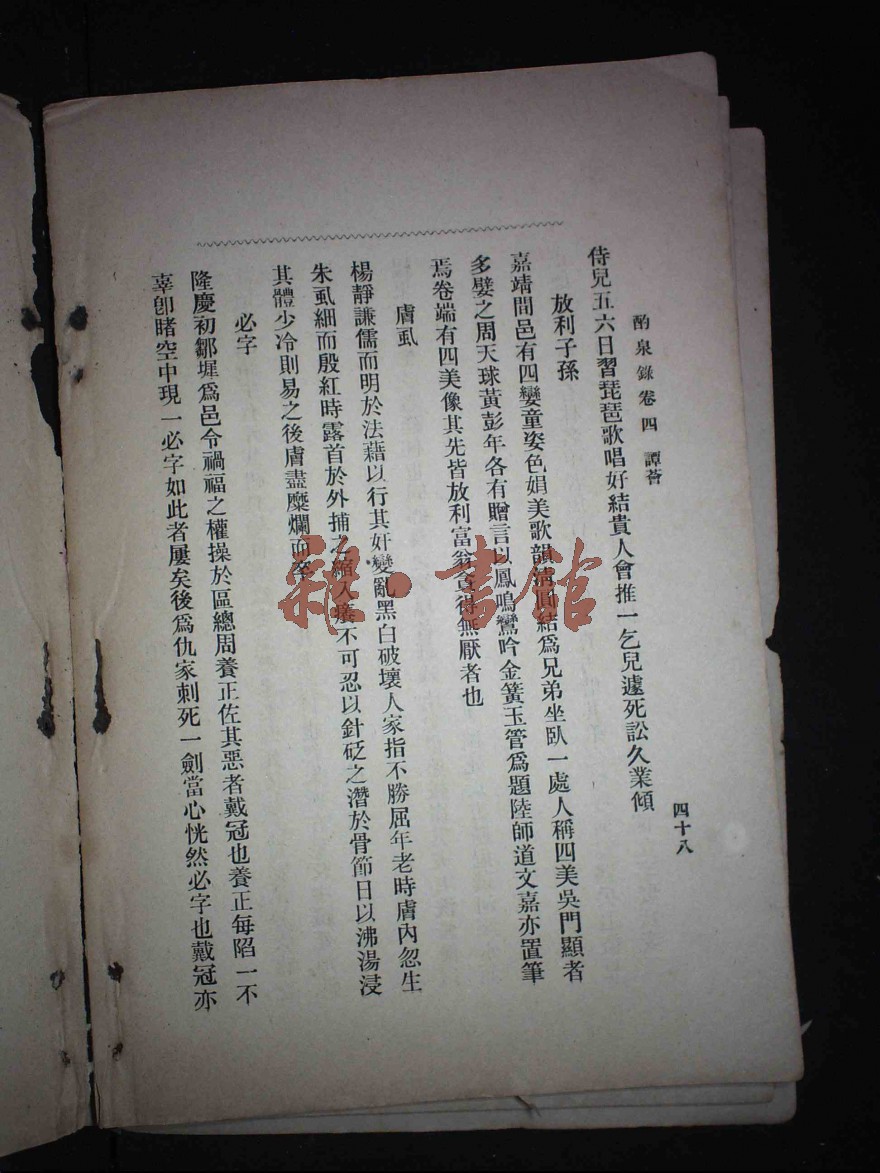 酌泉錄卷四 譚薈
四十八
侍兒五六日習琵琶歌唱好結貴人會推一乞兒遽死訟久業傾
放利子孫
嘉靖間邑有四孌童姿色娟美歌韻淸圓結爲兄弟坐臥一處人稱四美吳門顯者
多嬖之周天球黃彭年各有贈言以鳳鳴鸞吟金簧玉管爲題陸師道文嘉亦置筆
焉卷端有四美像其先皆放利富翁貪得無厭者也
膚虱
楊靜謙儒而明於法藉以行其奸變亂黑白破壞人家指不勝屈年老時膚內忽生
朱虱細而殷紅時露首於外捕之縮入癢不可忍以針砭之潛於骨節日以沸湯浸
其體少冷則易之後膚盡糜爛而卒
必字
隆慶初鄒墀爲邑令禍福之權操於區總周養正佐其惡者戴冠也養正每陷一不
辜卽睹空中現一必字如此者屢矣後爲仇家刺死一劍當心恍然必字也戴冠亦
雜·書館